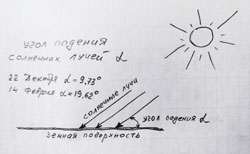 УГОЛ ПАДЕНИЯ
СОЛНЕЧНЫХ ЛУЧЕЙ α
22 Декабря α = 9.73°
14 Февраля α = 19,62°
СОЛНЕЧНЫЕ ЛУЧИ
УГОЛ ПАДЕНИЯ α
ЗЕМНАЯ ПОВЕРХНОСТЬ